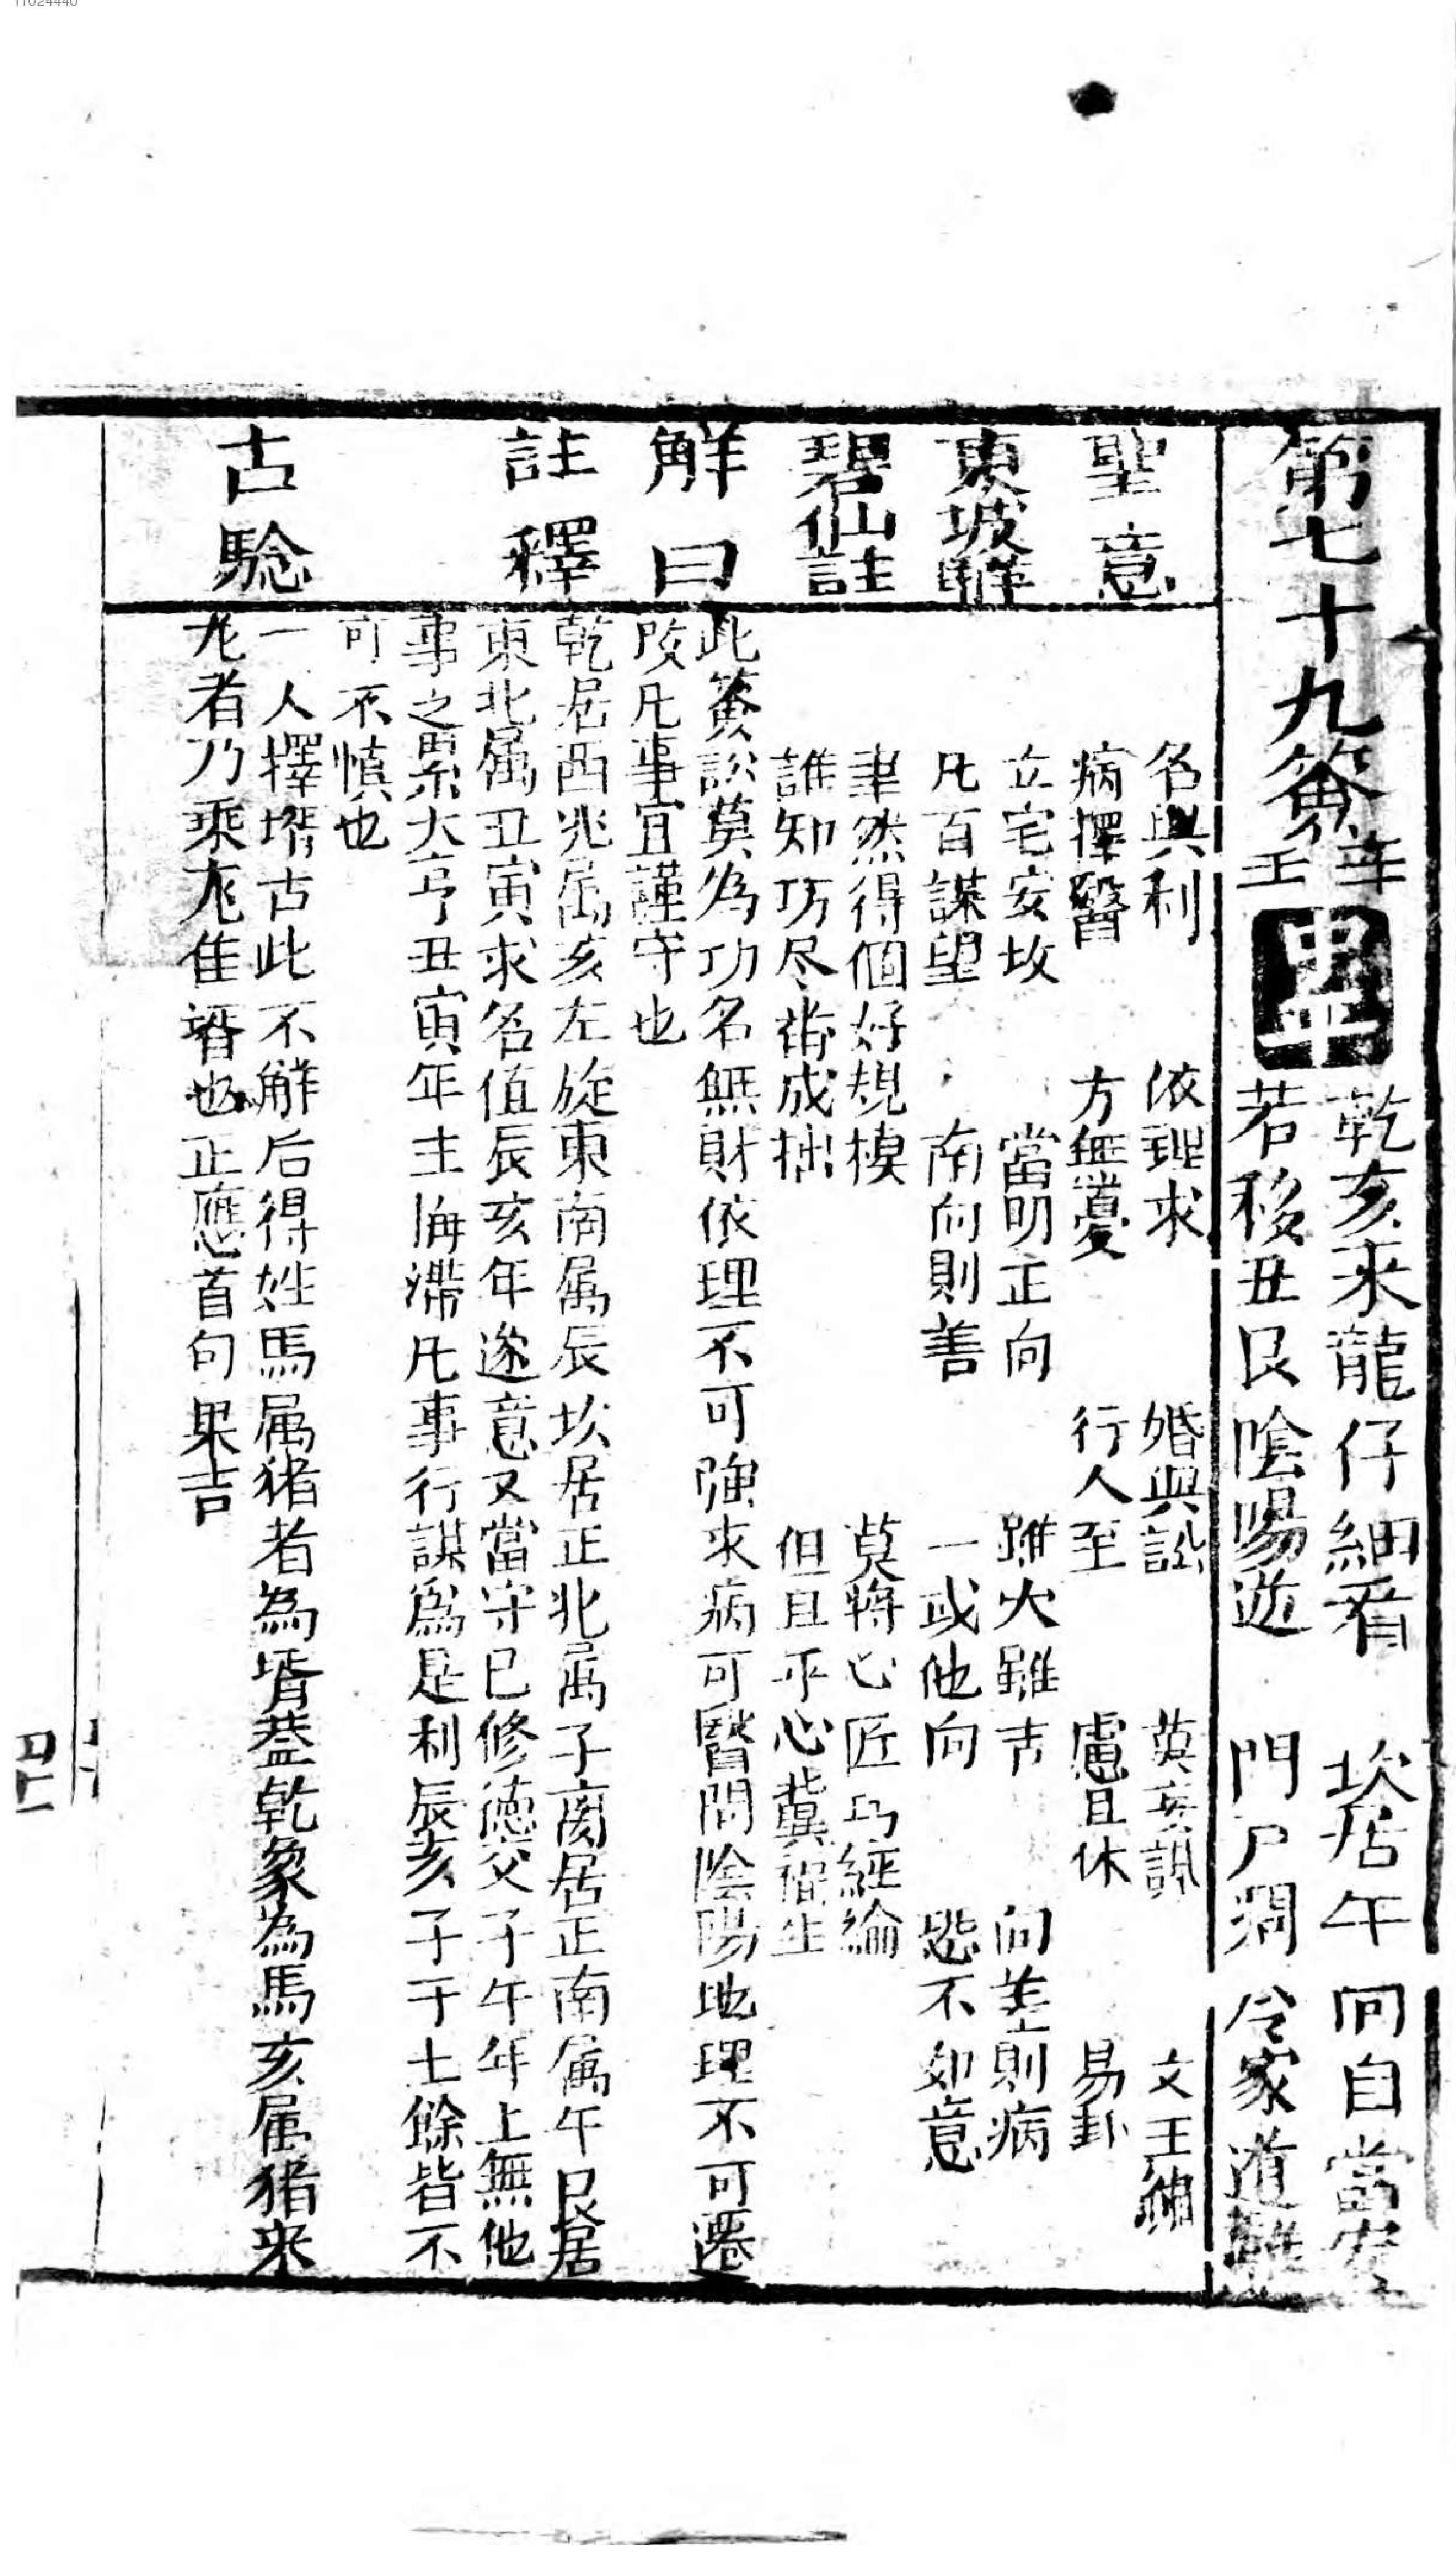 11024440
第七十九簽
辛
壬
乾亥来龍仔細看 坎居午向自當安
若移丑艮陰陽逆 門戶凋令家道難
聖意
名與利 依理求 婚與訟 莫妄訴 文王
病擇醫 方無憂 行人至 慮且休 易卦
東坡解
立宅安坟 當明正向 雖大雖吉 向差則病
凡百謀望 南向則善 一或他向 恐不如意
碧仙註
聿然得個好規模 莫將心匠巧經綸
誰知巧尽番成拙 但且平心冀福生
解曰
此簽訟莫為功名無財依理不可強求病可醫問陰陽地理不可遷
改凡事宜謹守也
註釋
乾居西兆属亥左旋東南属辰坎居正北属子离居正南属午艮居
東北属丑寅求名值辰亥年遂意又當守已修德交子午年上無他
事之累大亨丑寅年主悔滯凡事行謀爲是利辰亥子于士餘皆不
可不慎也
古驗
一人擇壻占此不解后得姓馬属猪者為壻葢乾象為馬亥属猪来
龙者乃乘龙佳壻也正應首句果吉